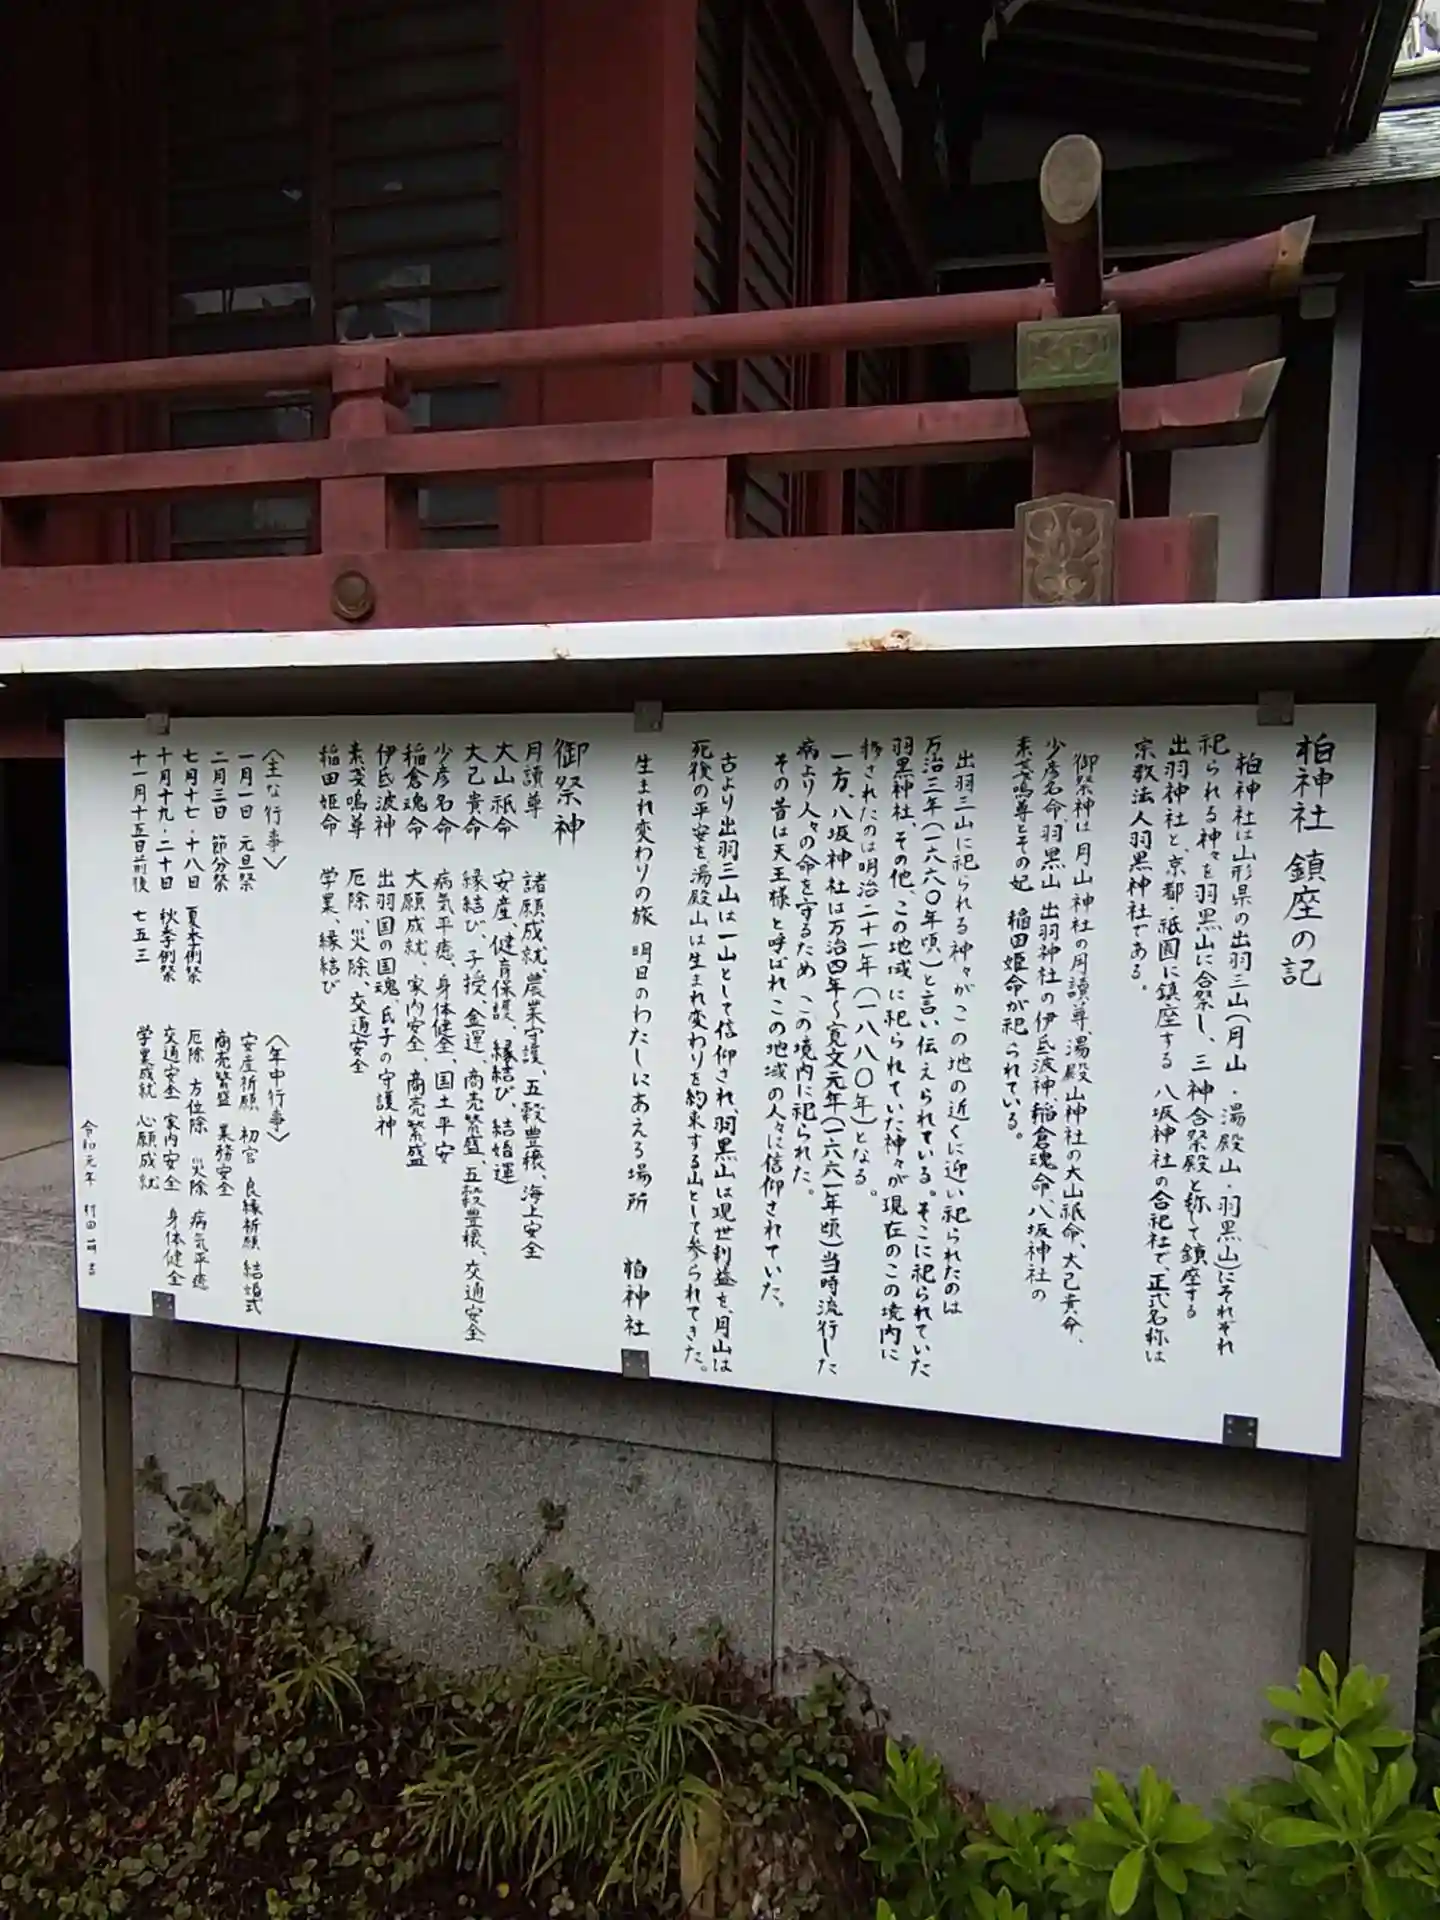 柏神社 鎮座の記
柏神社は山形県の出羽三山(月山・湯殿山・羽黒山)にそれぞれ
祀られる神々を羽黒山に合祭し、三神合祭殿と称して鎮座する
出羽神社と、京都・祇園に鎮座する 八坂神社の合祀社で、正式名称は
宗教法人羽黒神社である。
御祭神は月山神社の月讀尊、湯殿山神社の大山祇命、大己貴命、
少彦名命、羽黒山 出羽神社の伊氐波神、稲倉魂命、八坂神社の
素戔嗚尊とその妃 稲田姫命が祀られている。
出羽三山に祀られる神々がこの地の近くに迎い祀られたのは
万治三年(一六六〇年頃)と言い伝えられている。そこに祀られていた
羽黒神社、その他、この地域に祀られていた神々が現在のこの境内に
移されたのは明治二十一年(一八八〇年)となる。
一方、八坂神社は万治四年~寛文元年(一六六一年頃)当時流行した
病より人々の命を守るため、この境内に祀られた。
その昔は天王様と呼ばれこの地域の人々に信仰されていた。
古より出羽三山は一山として信仰され、羽黒山は現世利益を、月山は
死後の平安を湯殿山は生まれ変わりを約束する山として参られてきた。
生まれ変わりの旅 明日のわたしにあえる場所 柏神社
御祭神
月讀尊 諸願成就、農業守護、五穀豊穣、海上安全
大山祇命 安産、健育保護、縁結び、結婚運
大己貴命 縁結び、子授、金運、商売繁盛、五穀豊穣、交通安全
少彦名命 病気平癒、身体健全、国土平安
稲倉魂命 大願成就、家内安全、商売繁盛
伊氐波神 出羽国の国魂、氏子の守護神
素戔嗚尊 厄除、災除、交通安全
稲田姫命 学業、縁結び
〈主な行事〉
一月一日 元旦祭
二月三日 節分祭
七月十七・十八日 夏季例祭
十月十九・二十日 秋季例祭
十一月十五日前後 七五三
〈年中行事〉
安産祈願 初宮 良縁祈願 結婚式
商売繁盛 業務安全
厄除 方位除 災除 病気平癒
交通安全 家内安全 身体健全
学業成就 心願成就
令和元年 村田